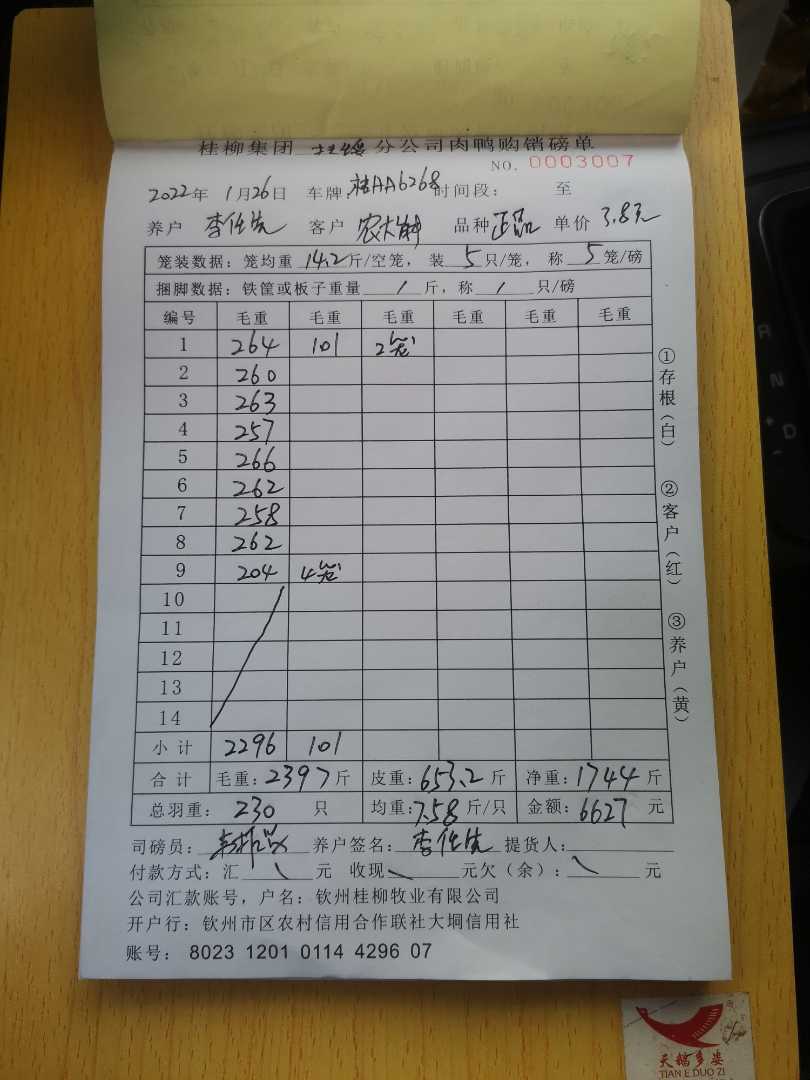 桂柳集团 扶绥 分公司肉鸭购销磅单
NO. 0003007
2022年 1月26日 车牌:桂AA6268 时间段: 至
养户 李仕生 客户 品种 正品 单价 3.8元
笼装数据:笼均重 14.2 斤/空笼,装 5 只/笼,称 5 笼/磅
捆脚数据:铁筐或板子重量 / 斤,称 / 只/磅
编号 毛重 毛重 毛重 毛重 毛重 毛重
1 264 101 2笼
2 260
3 263
4 257
5 266
6 262
7 258
8 262
9 204 4笼
10
11
12
13
14
小计 2296 101
合计 毛重:2397斤 皮重:653.2斤 净重:1744斤
总羽重: 230 只 均重:7.58斤/只 金额:6627元
司磅员: 养户签名:李仕生 提货人:
付款方式:汇 \ 元 收现 \ 元欠(余): \ 元
公司汇款账号,户名:钦州桂柳牧业有限公司
开户行:钦州市区农村信用合作联社大垌信用社
账号: 8023 1201 0114 4296 07
①存根(白)
②客户(红)
③养户(黄)
天鹅多姿
TIAN E DUO ZI